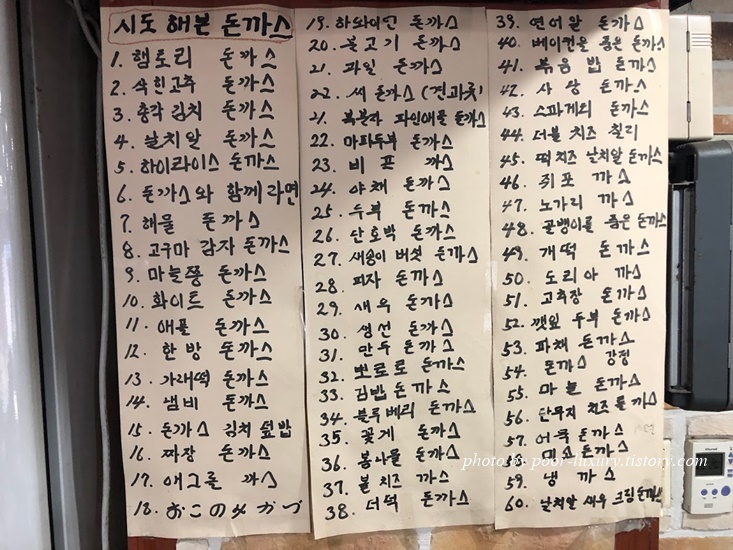 시도 해본 돈까스
1. 햄토리 돈까스
2. 삭힌고추 돈까스
3. 총각김치 돈까스
4. 날치알 돈까스
5. 하이라이스 돈까스
6. 돈까스와 함께 라면
7. 해물 돈까스
8. 고구마 감자 돈까스
9. 마늘쫑 돈까스
10. 화이트 돈까스
11. 애플 돈까스
12. 한방 돈까스
13. 가래떡 돈까스
14. 냄비 돈까스
15. 돈까스 김치 덮밥
16. 짜장 돈까스
17. 에그롤 까스
18. おこのみかつ
19. 하와이안 돈까스
20. 불고기 돈까스
21. 과일 돈까스
22. 씨 돈까스 (견과류)
21. 복분자 파인애플 돈까스
22. 마파두부 돈까스
23. 비프 까스
24. 야채 돈까스
25. 두부 돈까스
26. 단호박 돈까스
27. 새송이 버섯 돈까스
28. 피자 돈까스
29. 새우 돈까스
30. 생선 돈까스
31. 만두 돈까스
32. 뽀로로 돈까스
33. 김밥 돈까스
34. 블루베리 돈까스
35. 꽃게 돈까스
36. 봄나물 돈까스
37. 볼 치즈 까스
38. 더덕 돈까스
39. 연어알 돈까스
40. 베이컨을 품은 돈까스
41. 볶음밥 돈까스
42. 사랑 돈까스
43. 스파게티 돈까스
44. 더블 치즈 칠리
45. 떡치즈 날치알 돈까스
46. 쥐포 까스
47. 노가리 까스
48. 골뱅이를 품은 돈까스
49. 개떡 돈까스
50. 도리아 까스
51. 고추장 돈까스
52. 깻잎 두부 돈까스
53. 파채 돈까스
54. 돈까스 강정
55. 마늘 돈까스
56. 단무지 치즈롤 까스
57. 어묵 돈까스
58. 미소 돈까스
59. 냉 까스
60. 날치알 새우 크림 돈까스
photo by poor-luxury.tistory.com